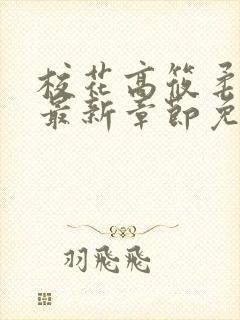 校花高筱柔
最新章节免
羽飛飛